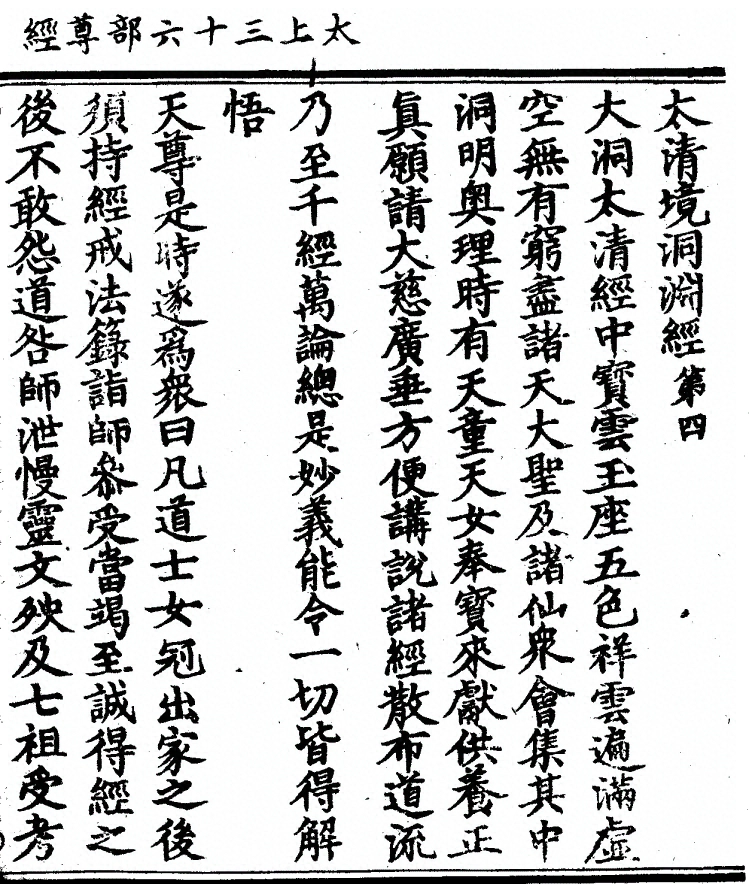 太上三十六部尊經
太清境洞淵經第四
大洞太清經中寶雲玉座五色祥雲遍滿虛
空無有窮盡諸天大聖及諸仙衆會集其中
洞明奧理時有天童天女奉寶來獻供養正
眞願請大慈廣垂方便講說諸經散布道流
乃至千經萬論總是妙義能令一切皆得解
悟
天尊是時遂爲衆曰凡道士女冠出家之後
須持經戒法籙詣師叅受當竭至誠得經之
後不敢怨道咎師泄慢靈文殃及七祖受考